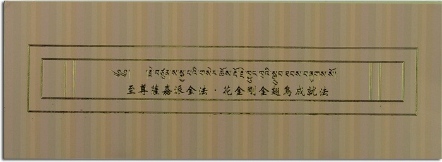 ༄༅། །རྗེ་བཙུན་ས་སྐྱ་པའི་གསེར་ཆོས་རྡོ་རྗེ་ཁྱུང་ཁྲའི་སྒྲུབ་ཐབས་བཞུགས་སོ།
至尊薩嘉派金法．花金剛金翅鳥成就法